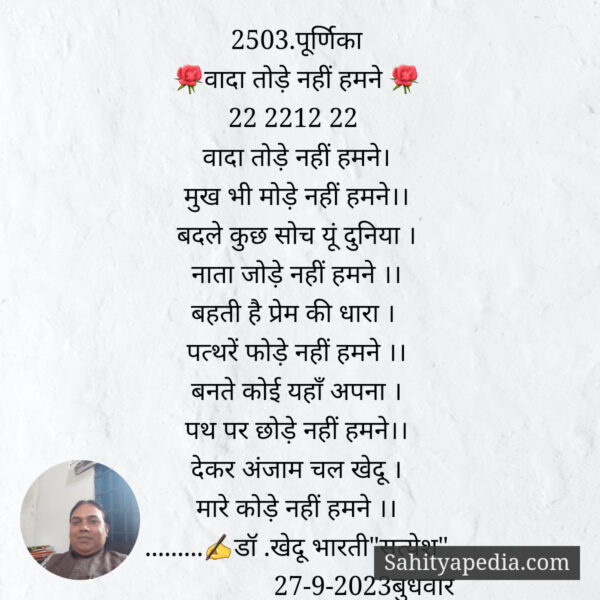 2503.पूर्णिका
🌹वादा तोड़े नहीं हमने 🌹
22 2212 22
वादा तोड़े नहीं हमने।
मुख भी मोड़े नहीं हमने।।
बदले कुछ सोच यूं दुनिया ।
नाता जोड़े नहीं हमने ।।
बहती है प्रेम की धारा ।
पत्थरें फोड़े नहीं हमने ।।
बनते कोई यहाँ अपना ।
पथ पर छोड़े नहीं हमने।।
देकर अंजाम चल खेदू ।
मारे कोड़े नहीं हमने ।।
.........✍️डॉ .खेदू भारती"सत्येश"
Sahityapedia.com
27-9-2023बुधवार